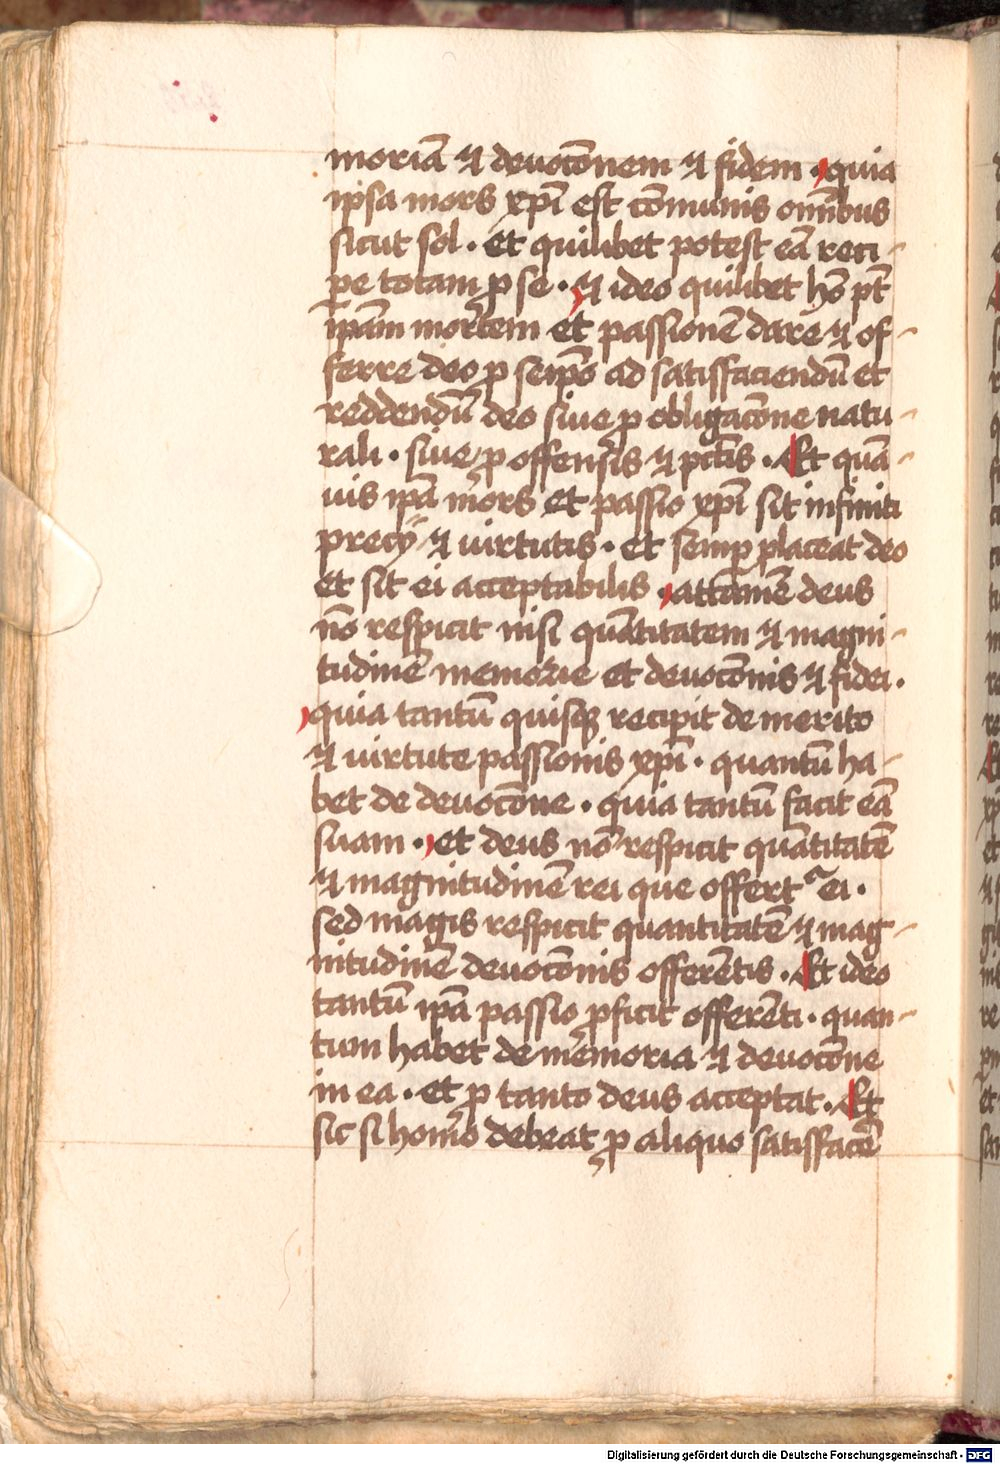 moriā ⁊ deuocōnem ⁊ fidem · quia
ipsa mors xp̄i est cōmunis om̄ibus
sicut sol · et quilibet potest eā reci-
pe totam ꝓ se · ⁊ ideo quilibet hō pt̄
ip̄am mortem et passionē dare ⁊ of-
ferre deo ꝓ seip̄o ad satisfaciendū et
reddendū deo siue ꝓ obligacōne natu-
rali · siue ꝓ offensis ⁊ pctīs · Et quā-
uis ip̄a mors et passio xp̄i sit infiniti
precij ⁊ uirtutis · et semꝑ placeat deo
et sit ei acceptabilis · attamē deus
nō respicit nisi quātitatem ⁊ magni-
tudinē memorie et deuocōnis ⁊ fidei ·
quia tantū quisqꝫ recipit de merito
⁊ uirtute passionis xp̄i · quantū ha-
bet de deuocōne · quia tantū facit eā
suam · et deus nō respicit quātitatē
⁊ magnitudinē rei que offert᷑ ei ·
sed magis respicit quantitatē ⁊ mag-
nitudinē deuocōnis offerētis · Et ideo
tantū ip̄a passio ꝓficit offerēti · quan-
tum habet de memoria ⁊ deuocōne
in ea · et ꝓ tanto deus acceptat · Et
sic si homo debeat ꝓ aliquo satisfacē
Digitalisierung gefördert durch die Deutsche Forschungsgemeinschaft - DFG